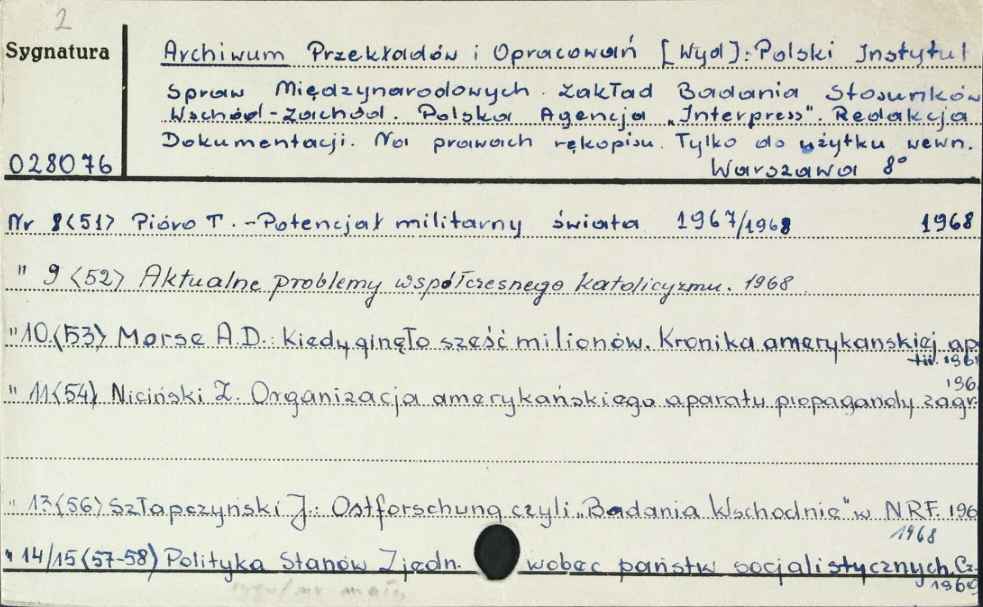 2
Sygnatura
Archiwum Przekładów i Opracowań [Wyd]: Polski Instytut
Spraw Międzynarodowych. Zakład Badania Stosunków
Wschód-Zachód. Polska Agencja „Interpress". Redakcja
Dokumentacji. Na prawach rękopisu. Tylko do użytku wewn.
028076 Warszawa 8°
Nr 8<51> Pióro T. - Potencjał militarny świata 1967/1968 1968
" 9 <52> Aktualne problemy współczesnego katolicyzmu. 1968
" 10.<53> Morse A.D.: Kiedy ginęło sześć milionów. Kronika amerykanskiej ap
tii. 196
196
" 11<54) Niciński Z. Organizacja amerykańskiego aparatu propagandy zagr.
" 13<56) Szłapczyński J.: Ostforschung czyli „Badania Wschodnie" w NRF. 196
1968
" 14/15<57-58) Polityka Stanów Zjedn. wobec państw socjalistycznych. Cz.
1968